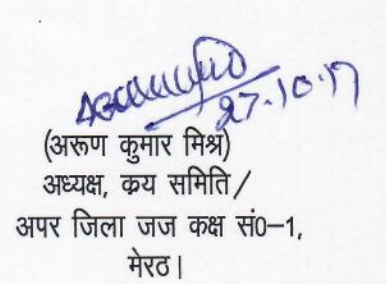 27.10.17
(अरूण कुमार मिश्र)
अध्यक्ष, क्रय समिति/
अपर जिला जज कक्ष सं0-1,
मेरठ।